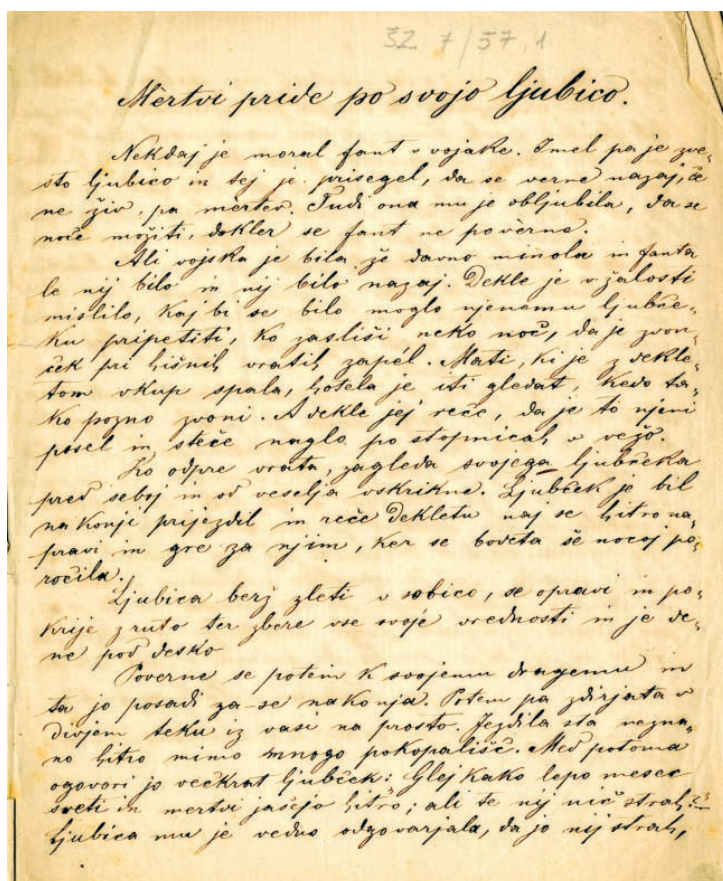 32 7/57, 1
Mèrtvi pride po svojo ljubico.
Nekdaj je moral fant v vojake. Imel pa je zve-
sto ljubico in tej je prisegel, da se verne nazaj, če
ne živ, pa mèrtev. Tudi ona mu je obljubila, da se
noče možiti, dokler se fant ne povèrne.
Ali vojska je bila že davno minola in fanta
le nij bilo in nij bilo nazaj. Dekle je v žalosti
mislilo, kaj bi se bilo moglo njenemu ljubče-
ku pripetiti, ko zasliši neko noč, da je zvon-
ček pri hišnih vratih zapél. Mati, ki je z dekle-
tom vkup spala, hotela je iti gledat, kedo ta-
ko pozno zvoni. A dekle jej reče, da je to njeni
posel in steče naglo po stopnicah v vežo.
Ko odpre vrata, zagleda svojega ljubčeka
pred seboj in od veselja vskrikne. Ljubček je bil
na konji prijezdil in reče dekletu naj se hitro na-
pravi in gre za njim, ker se bodeta še nocoj po-
ročila.
Ljubica berž zleti v sobico, se opravi in po-
krije z ruto ter zbere vse svoje vrednosti in je de-
ne pod desko
Poverne se potem k svojemu dragemu in
ta jo posadi za-se na konja. Potem pa zdirjata v
divjem teku iz vasi na prosto. Jezdila sta nezna-
no hitro mimo mnogo pokopališč. Med potoma
ogovori jo večkrat ljubček: Glej kako lepo mesec
sveti in mertvi jašejo hitro; ali te nij nič strah?
Ljubica mu je vedno odgovarjala, da jo nij strah,